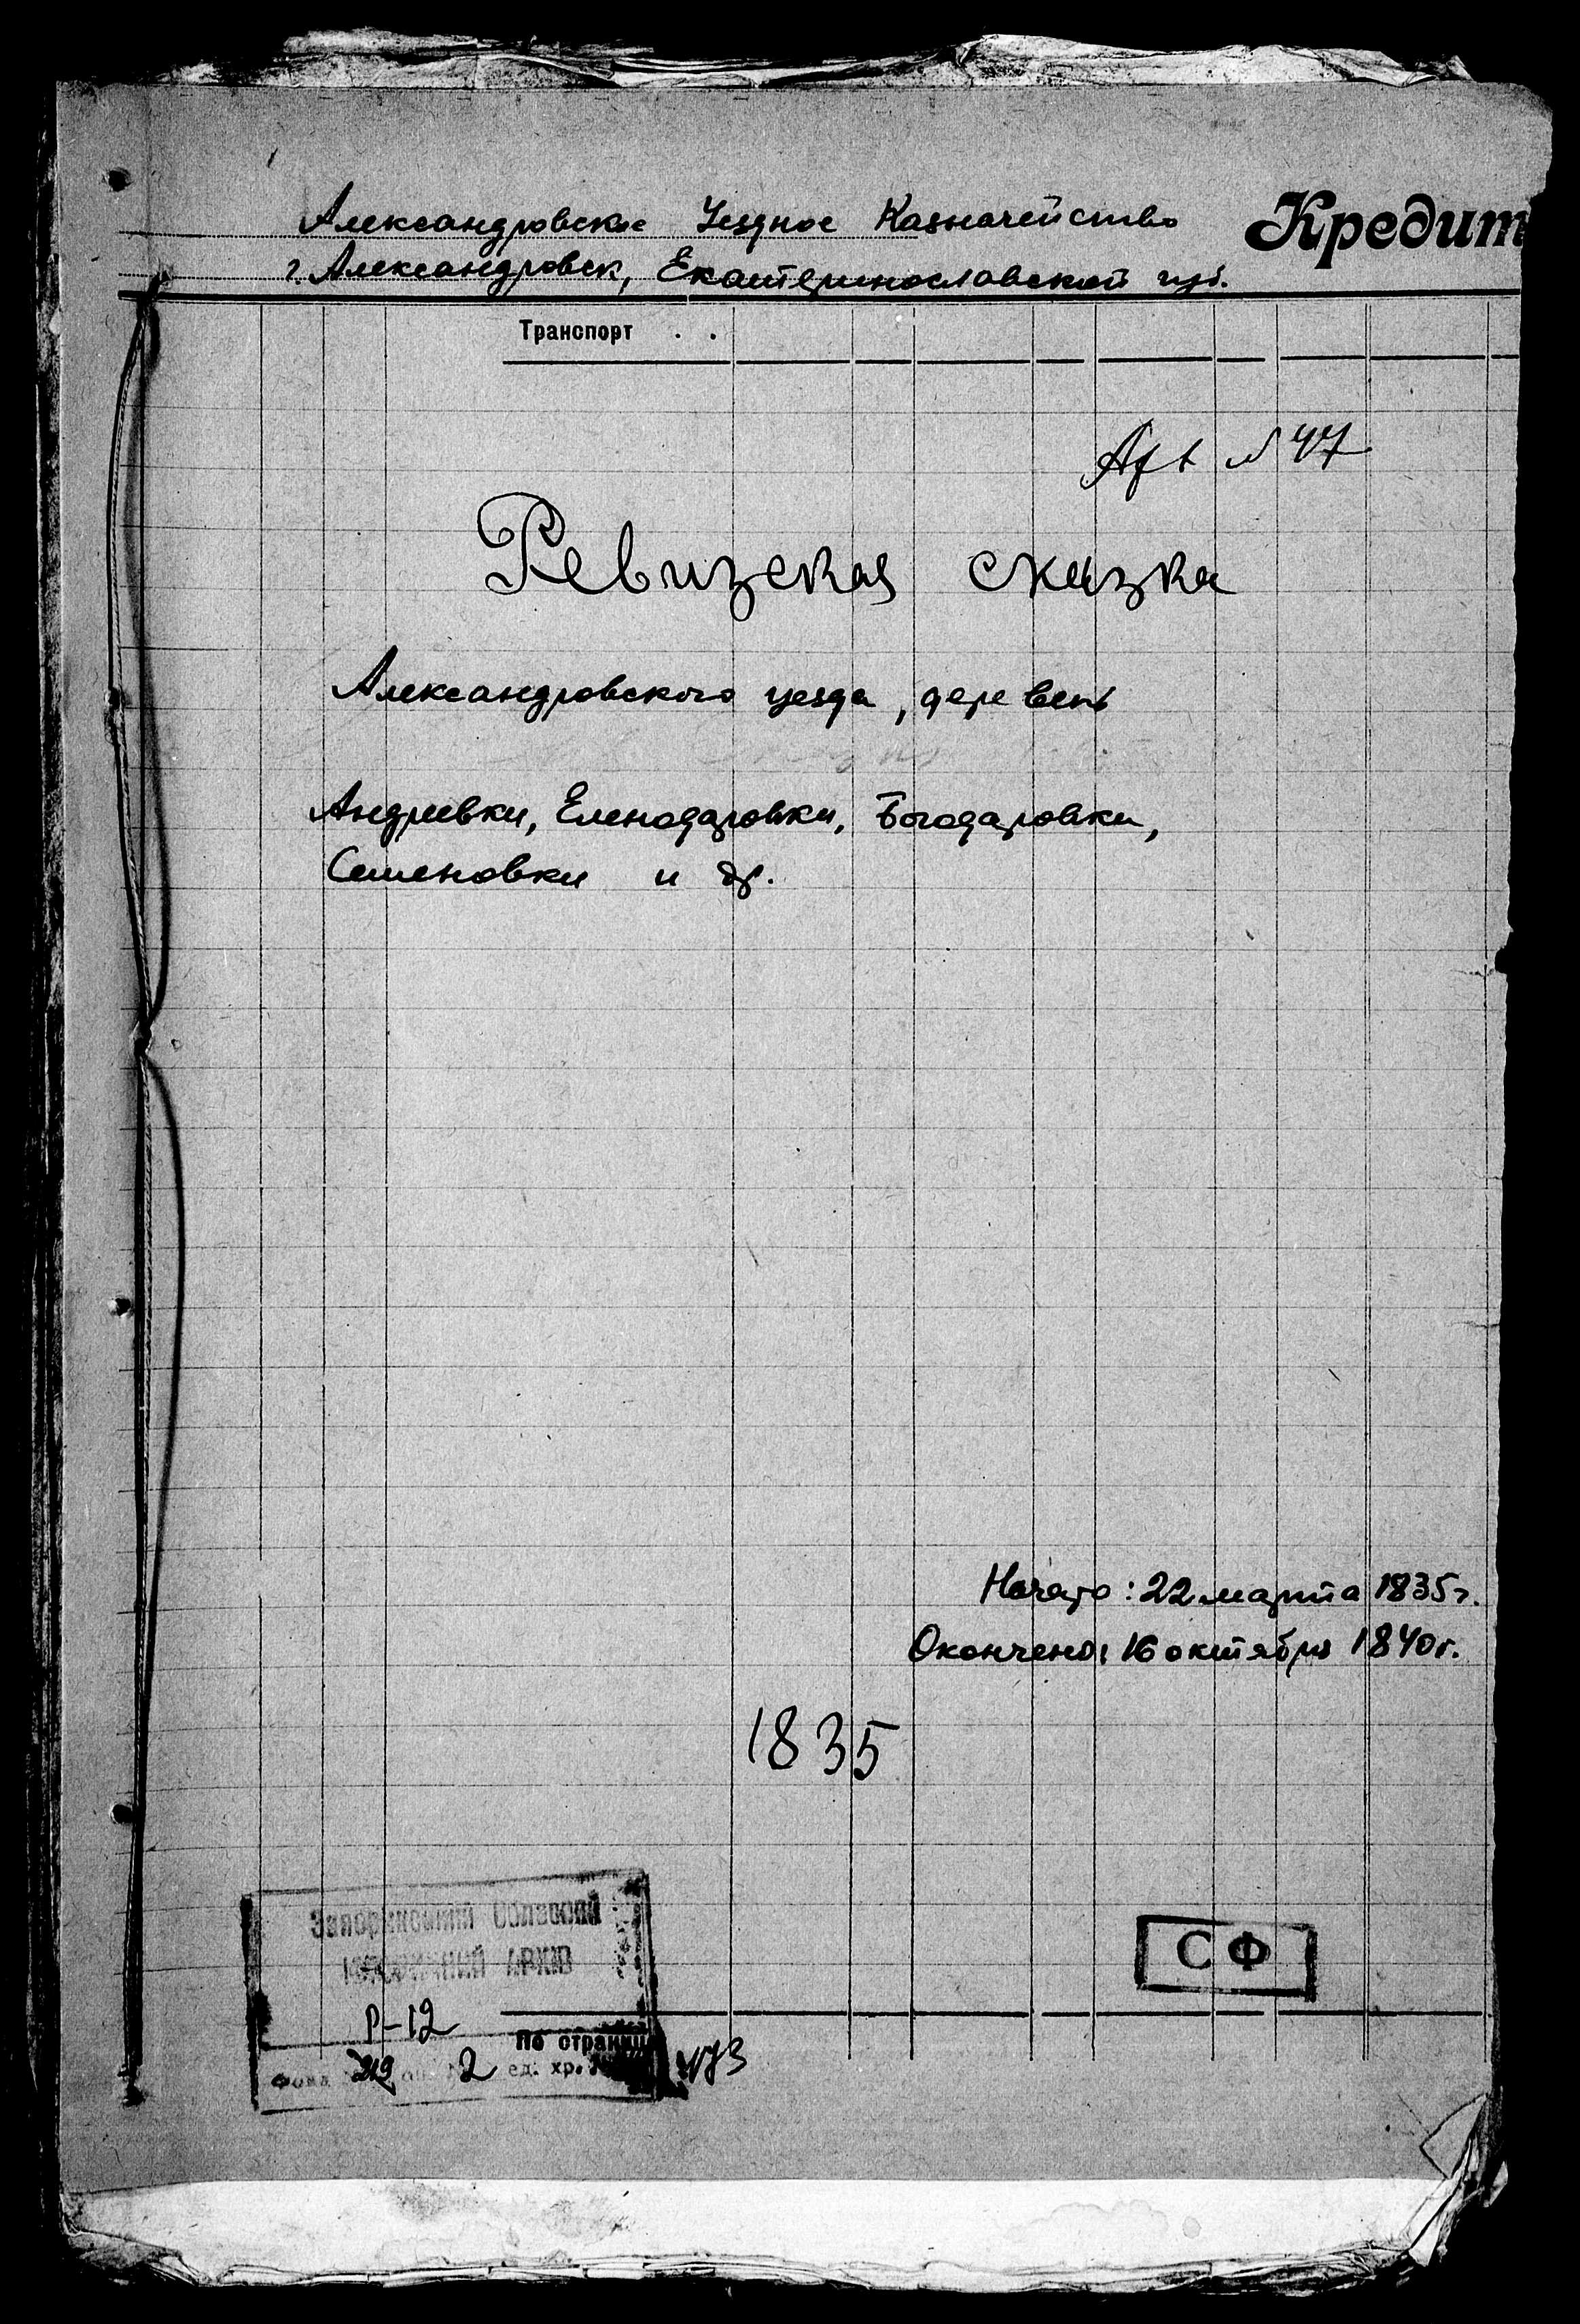 Александровское Уездное Казначейство
Кредит
г. Александровск, Екатеринославской губ.
Транспорт . .
№ 47
Ревизская сказка
Александровского уезда, деревень
Андреевки, Еленодаровки, Богодаровки,
Семеновки и др.
Начато: 22 марта 1835 г.
Окончено: 16 октября 1840 г.
1835
Запорижський Обласний
АРХІВ
СФ
Р-12
По страниц
2 ед. хр.